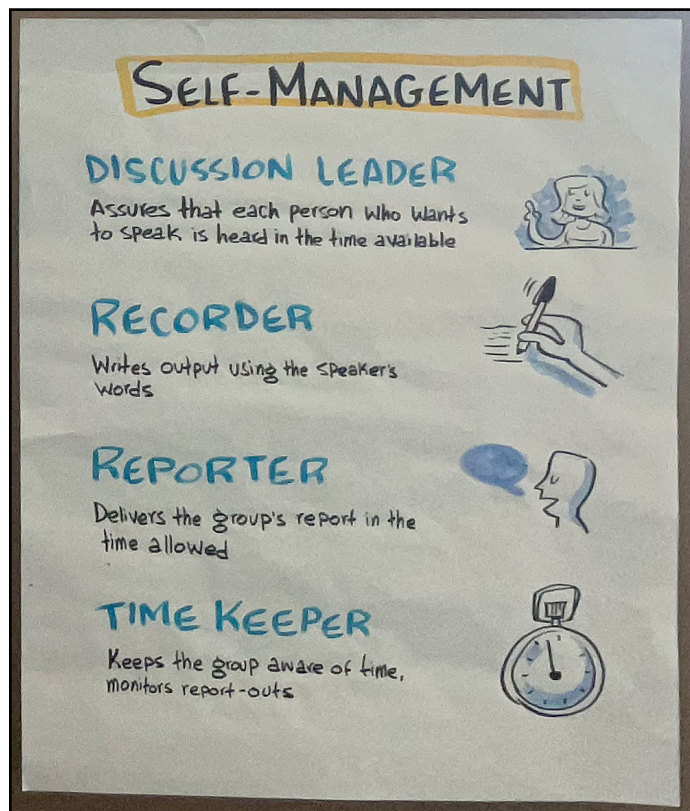 SELF-MANAGEMENT
DISCUSSION LEADER
Assures that each person who wants
to speak is heard in the time available
RECORDER
Writes output using the speaker's
words
REPORTER
Delivers the group's report in the
time allowed
TIME KEEPER
Keeps the group aware of time,
monitors report-outs